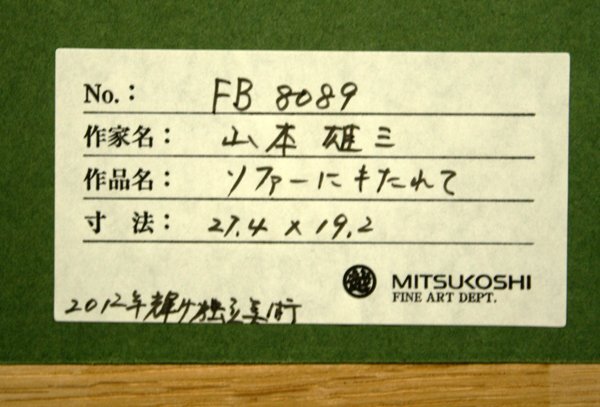 No.: FB 8089
作家名: 山本 雄三
作品名: ソファーにもたれて
寸 法: 27.4 x 19.2
MITSUKOSHI
FINE ART DEPT.
2012年輝く独立美術